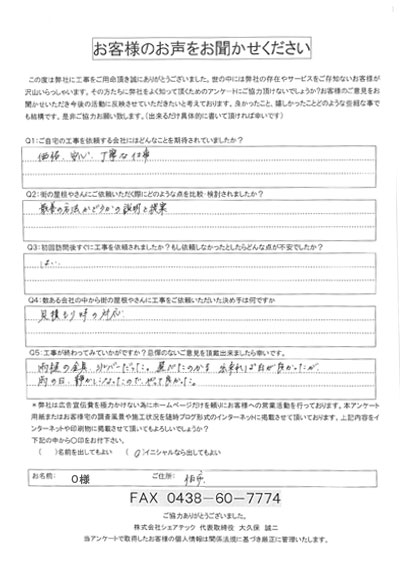 お客様のお声をお聞かせください
この度は弊社に工事をご用命頂き誠にありがとうございました。世の中には弊社の存在やサービスをご存知ないお客様が
沢山いらっしゃいます。その方たちに弊社をよく知って頂くためのアンケートにご協力頂けないでしょうか?お客様のご意見をお
聞かせいただき今後の活動に反映させていただきたいと考えております。良かったこと、嬉しかったことどのような些細な事で
も結構です。是非ご協力お願い致します。(出来るだけ具体的に書いて頂ければ幸いです)
Q1:ご自宅の工事を依頼する会社にはどんなことを期待されていましたか?
価格、安心、丁寧な仕事
Q2:街の屋根やさんにご依頼いただく際にどのような点を比較・検討されましたか?
最善の方法かどうかの説明と提案
Q3:初回訪問後すぐに工事を依頼されましたか?もし依頼しなかったとしたらどんな点が不安でしたか?
はい
Q4:数ある会社の中から街の屋根やさんに工事をご依頼いただいた決め手は何ですか
見積もり時の対応
Q5:工事が終わってみていかがですか?忌憚のないご意見を頂戴出来ましたら幸いです。
雨樋の金具、シルバーだった。選べたのかも 出来れば白が良かったが、
雨の日、静かになったので、やって良かった。
*弊社は広告宣伝費を極力かけない為にホームページだけを頼りにお客様への営業活動を行っております。本アンケート
用紙またはお客様宅の調査風景や施工状況を随時ブログ形式のインターネットに掲載させて頂いております。上記内容をイ
ンターネットや印刷物に掲載させて頂いてもよろしいでしょうか?
下記の中から〇印をお付け下さい。
( )名前を出してもよい (〇)イニシャルなら出してもよい
お名前: O様 ご住所:
FAX 0438-60-7774
ご協力ありがとうございました。
株式会社シェアテック 代表取締役 大久保 誠二
当アンケートで取得したお客様の個人情報は関係法規に基づき厳正に管理いたします。